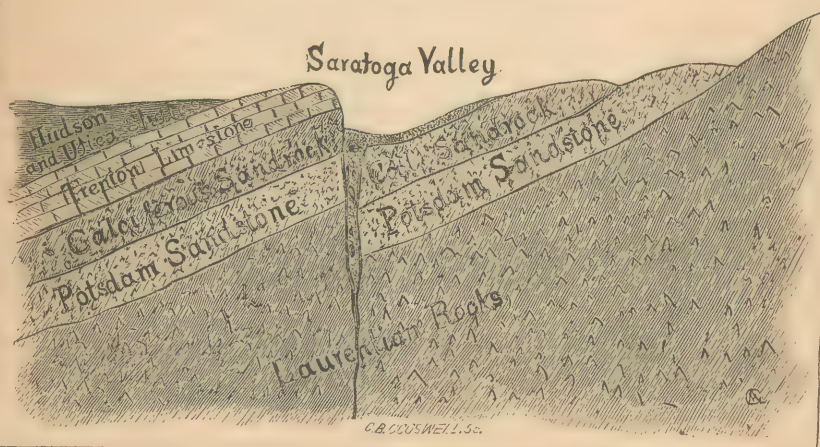 Saratoga Valley
Hudson
and Utica
Trenton Limestone
Calciferous Sandrock
Potsdam Sandstone
Calif. Sandrock
Potsdam Sandstone
Laurentian Rocks
C.B. COGSWELL. Sc.